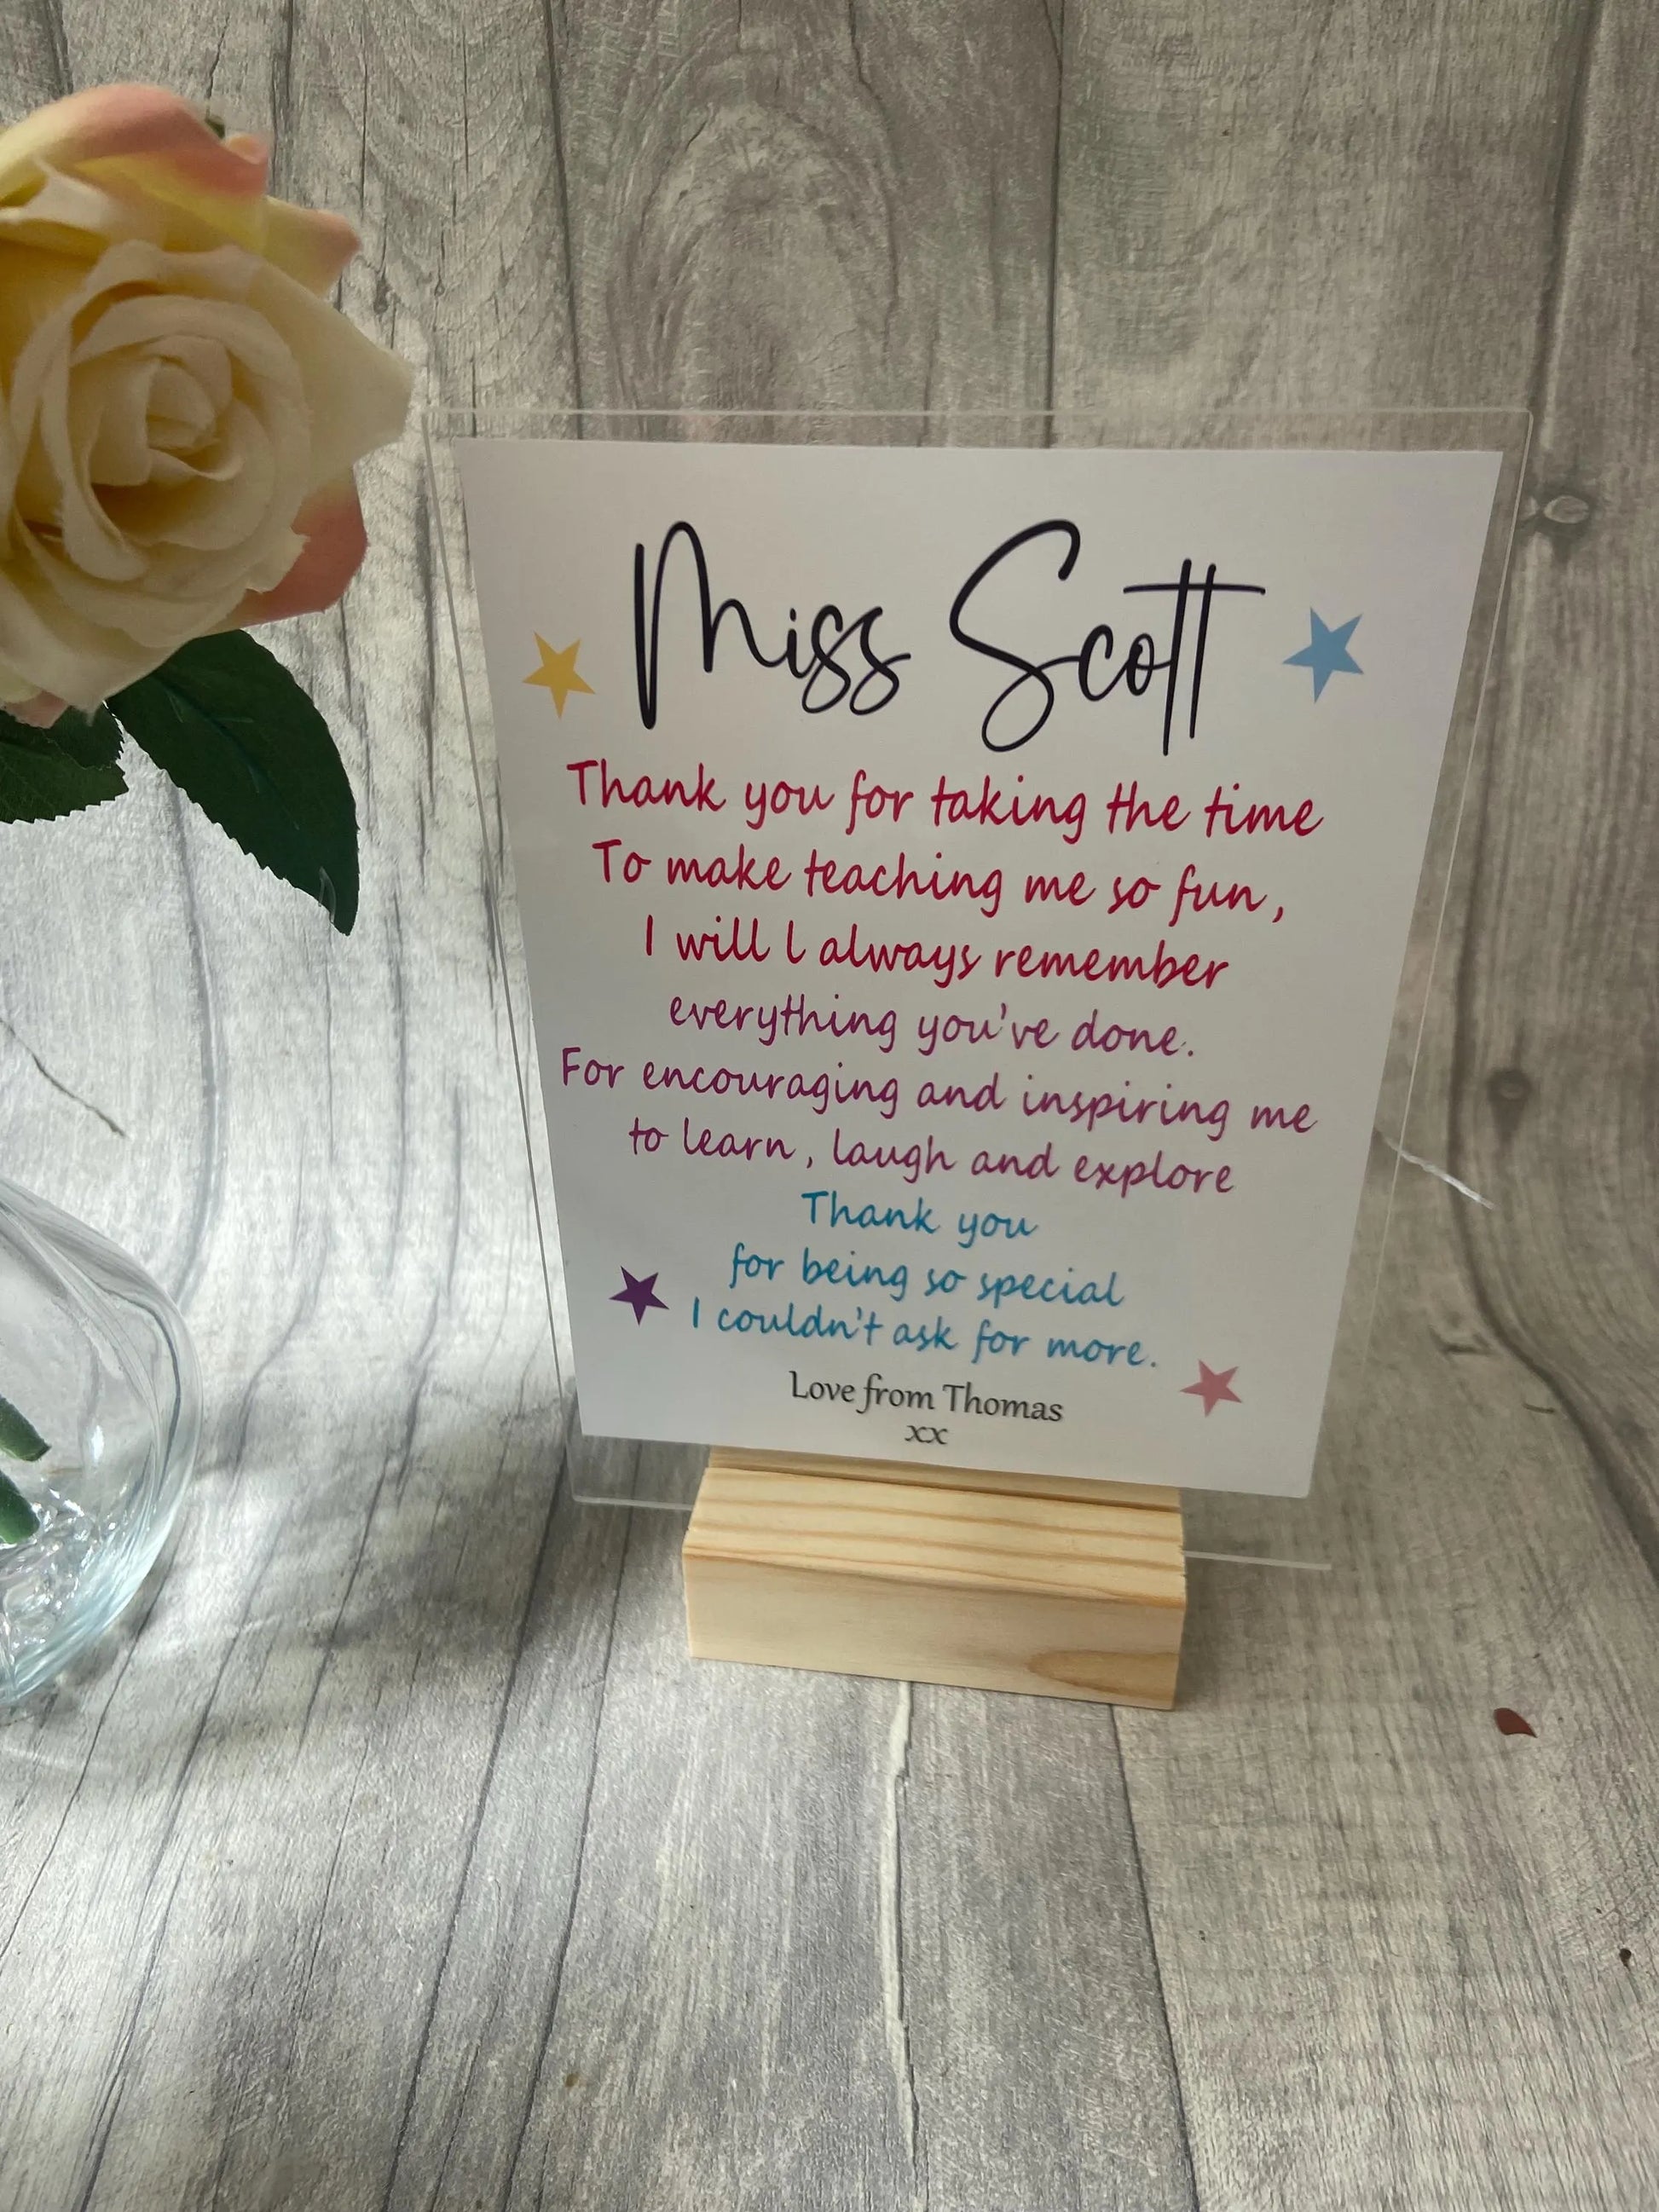 Miss Scott
Thank you for taking the time
To make teaching me so fun,
I will l always remember
everything you've done.
For encouraging and inspiring me
to learn, laugh and explore
Thank you
for being so special
I couldn't ask for more.
Love from Thomas
xx